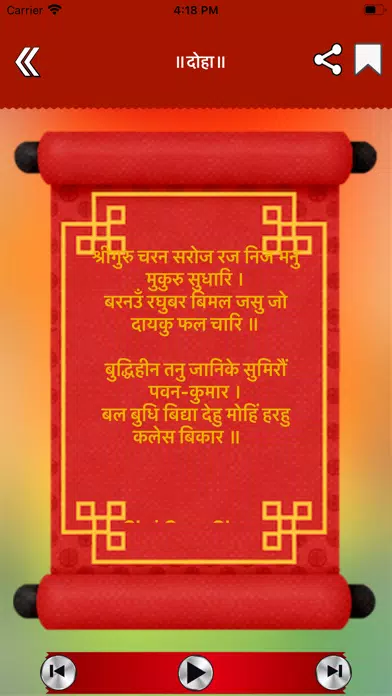 Carrier 4:18 PM
॥दोहा॥
श्रीगुरु चरन सरोज रज निज मनु
मुकुरु सुधारि ।
बरनउँ रघुबर बिमल जसु जो
दायकु फल चारि ॥
बुद्धिहीन तनु जानिके सुमिरौं
पवन-कुमार ।
बल बुधि बिद्या देहु मोहिं हरहु
कलेस बिकार ॥